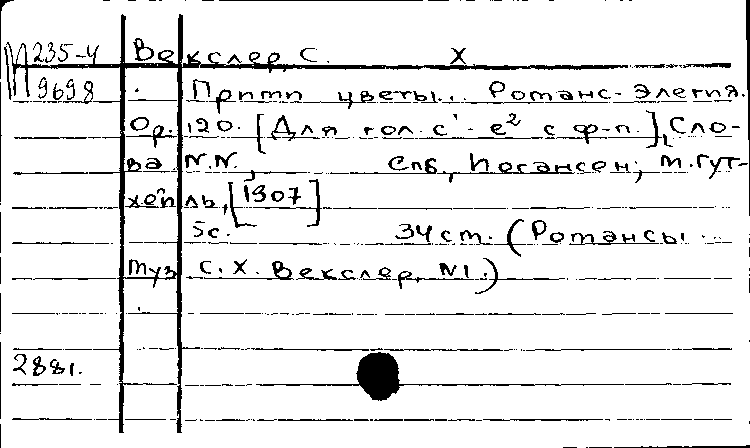 М 235-4 Векслер, С. Х
9698 Прими цветы... Романс-элегия.
Op. 120. [Для гол. c¹-e² с ф-п.], Сло-
ва N.N., Спб., Иогансен; М. Гут-
хейль, [1907]
5с. 34 cm. (Романсы ...
муз. С. Х. Векслер, N1.)
2881.